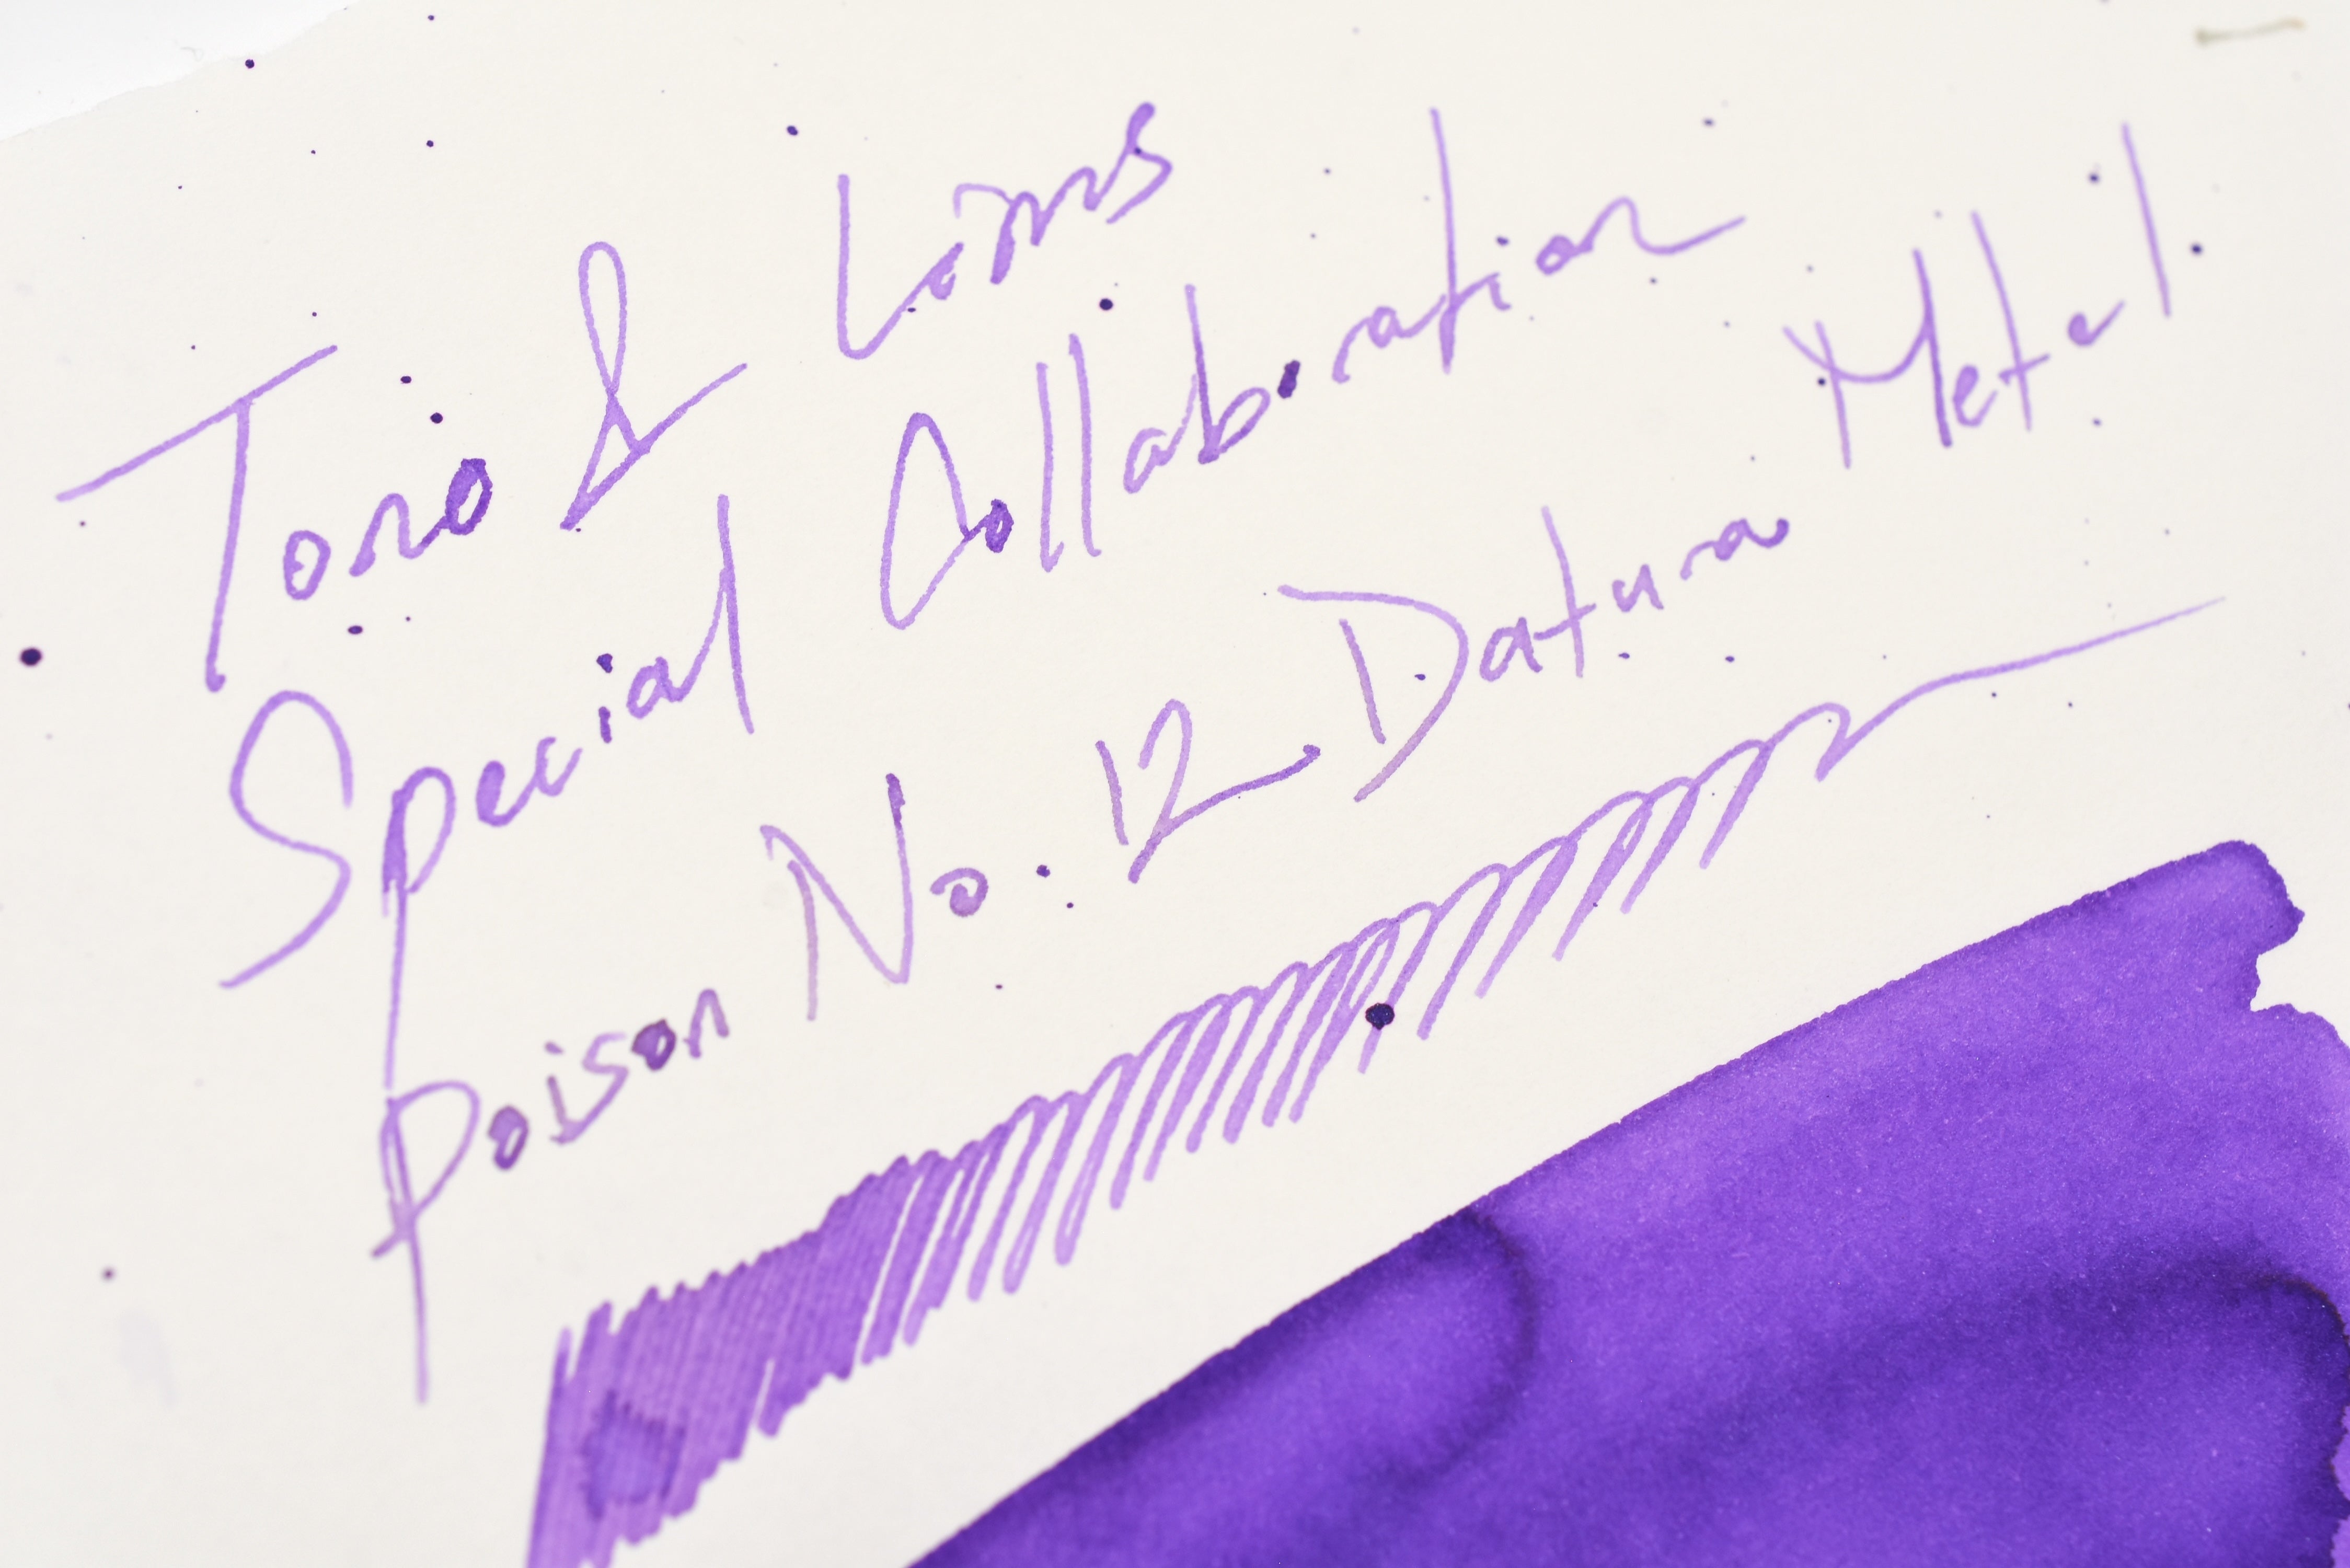 Tono & Lims
Special Collaboration
Poison No.12 Datura Metel